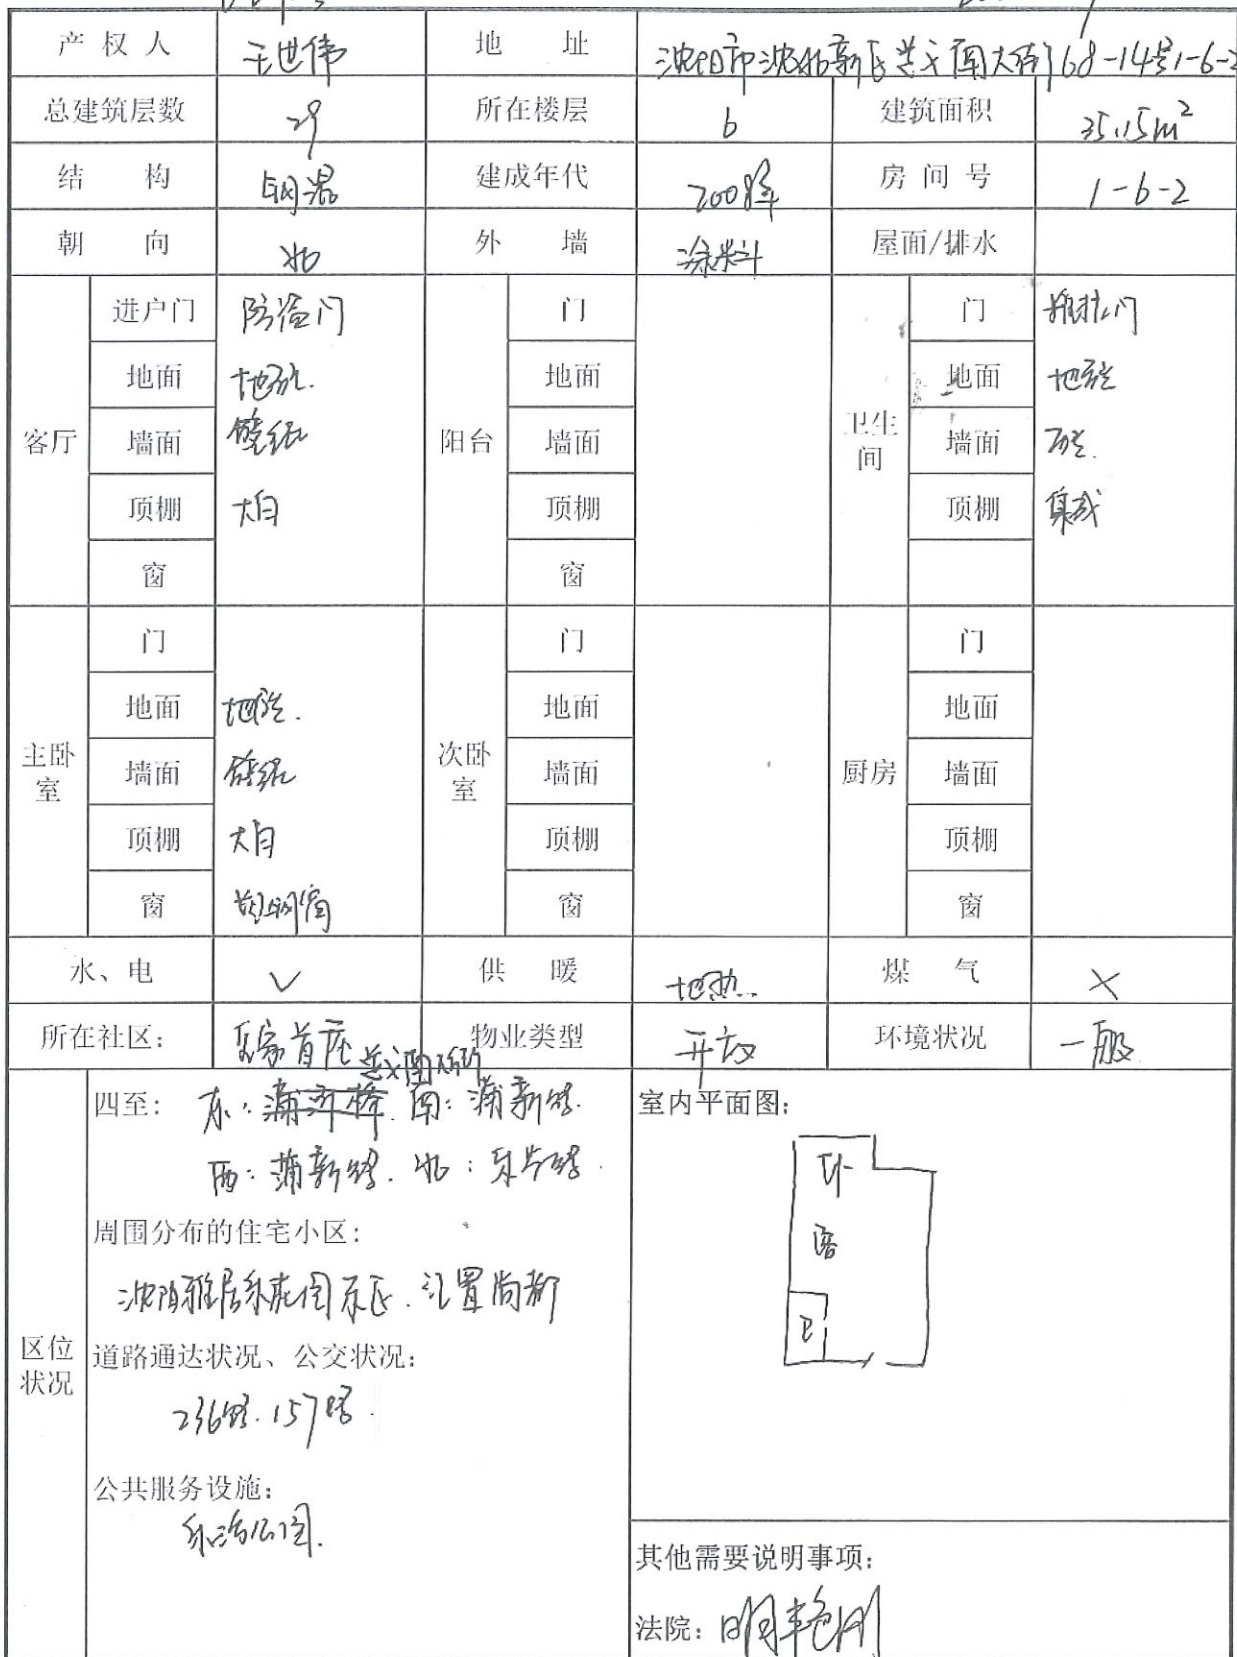 产权人 王世伟 地址 沈阳市沈北新区道义南大街68-14号1-6-2
总建筑层数 29 所在楼层 6 建筑面积 35.15m²
结构 钢混 建成年代 2008年 房间号 1-6-2
朝向 北 外墙 涂料 屋面/排水
客厅 阳台 卫生间
进户门 防盗门 门 门 推拉门
地面 地砖. 地面 地面 地砖
墙面 壁纸 墙面 墙面 砖.
顶棚 大白 顶棚 顶棚 集成
窗 窗
主卧室 次卧室 厨房
门 门 门
地面 地砖. 地面 地面
墙面 壁纸 墙面 墙面
顶棚 大白 顶棚 顶棚
窗 塑钢窗 窗 窗
水、电 ✓ 供暖 地热. 煤气 ×
所在社区: 首座 物业类型 开放 环境状况 一般
区位状况
道义南大街
四至: 东: 南: 蒲新路.
西: 蒲新路. 北:
周围分布的住宅小区:
沈阳雅居乐花园东区. 汇置尚都
道路通达状况、公交状况:
236路. 157路.
公共服务设施:
公园.
室内平面图:
卧
客
卫
其他需要说明事项:
法院: